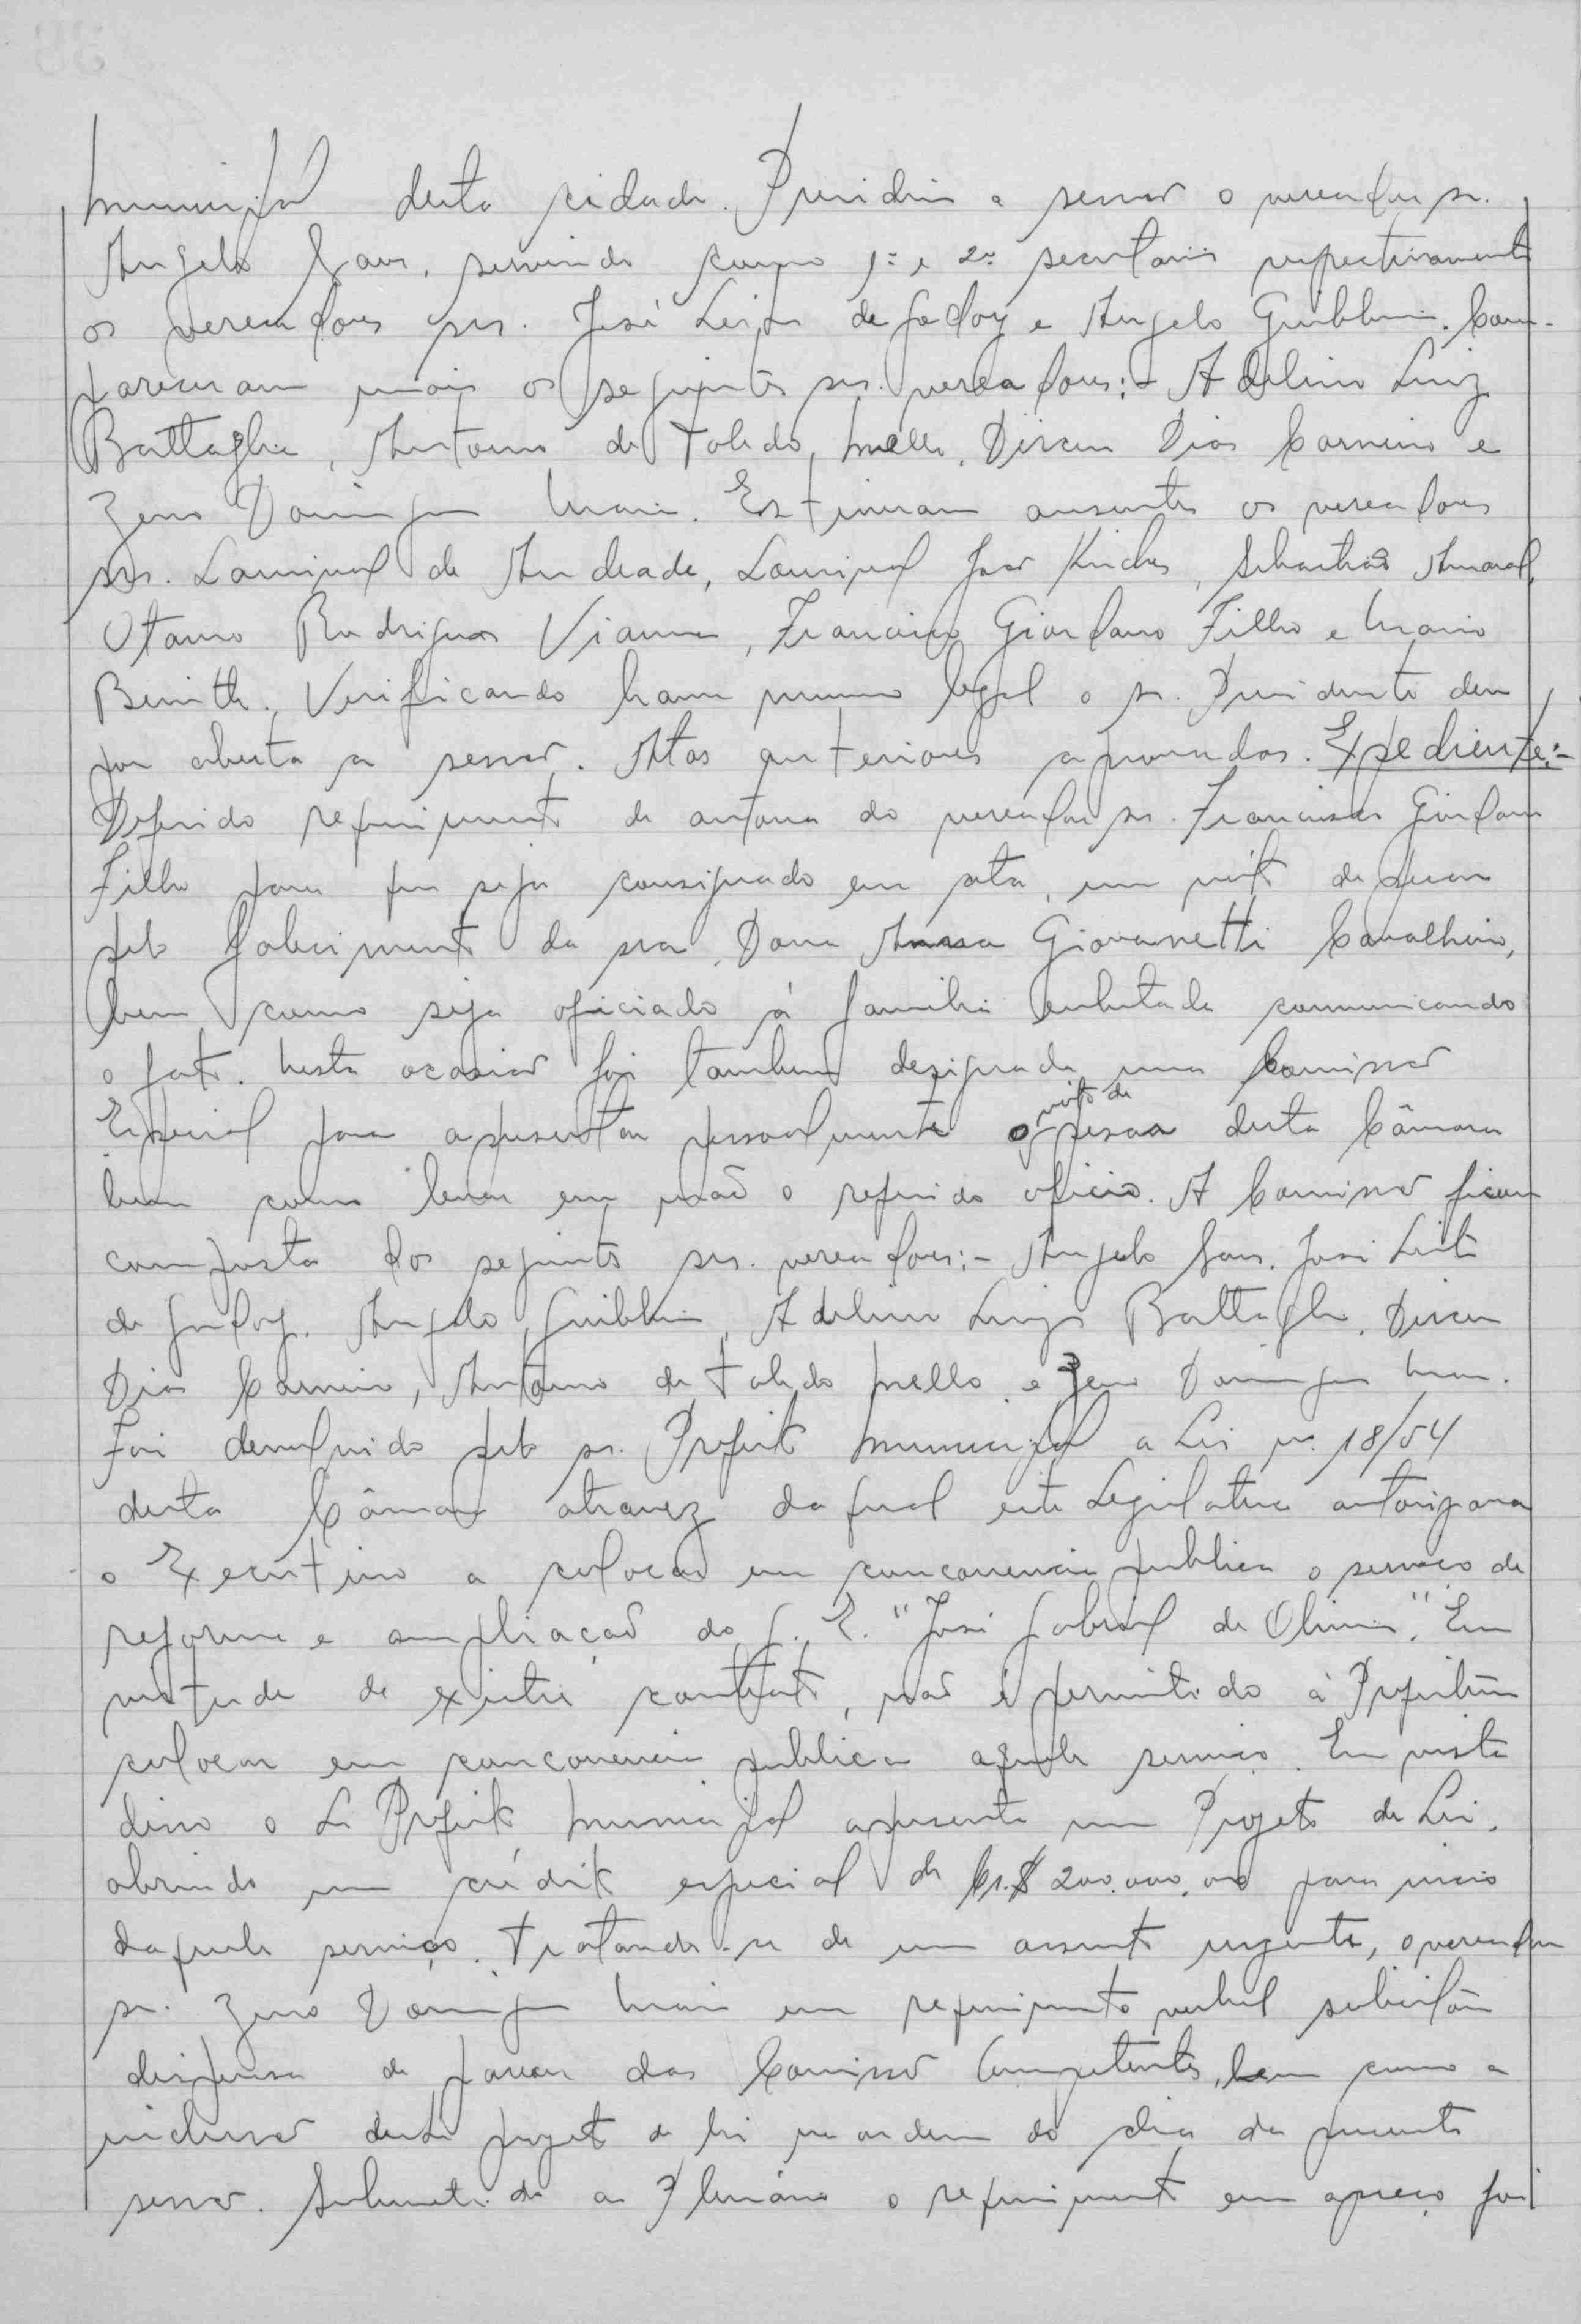 Municipal desta cidade. Presidiu a sessão o vereador sr.
Angelo Zaos, servindo como 1º e 2º secretarios respectivamente
os vereadores srs. José Leite de Godoy e Angelo Guibbini. Com-
pareceram mais os seguintes srs. vereadores:- Adelino Luiz
Battaglia, Antonio de Toledo Mello, Dirceu Dias Carneiro e
Zeno Domingues Maia. Estiveram ausentes os vereadores
srs. Lourival de Andrade, Lourival José Kirches, Sebastião Amaral,
Otavio Rodrigues Vianna, Francisco Giordano Filho e Mario
Benith. Verificando haver numero legal o sr. Presidente deu
por aberta a sessão. Atas anteriores aprovadas. Expediente:-
Deferido requerimento de autoria do vereador sr. Francisco Giordano
Filho para que seja consignado em ata, um voto de pesar
pelo falecimento da sra. Dona Anna Giovannetti Cavalheiro,
bem como seja oficiado á familia enlutada comunicando
o fato. Nesta ocasião foi tambem designada uma Comissão
Especial para apresentar pessoalmente o voto de pesar desta Câmara
bem como levar em mão o referido oficio. A Comissão ficou
composta dos seguintes srs. vereadores:- Angelo Zaos, José Leite
de Godoy, Angelo Guibbini, Adelino Luiz Battaglia, Dirceu
Dias Carneiro, Antonio de Toledo Mello e Zeno Domingues Maia.
Foi devolvido pelo sr. Prefeito Municipal a Lei nº 18/54
desta Câmara atravez da qual este Legislativo autorizava
o Executivo a colocar em concorrencia publica o serviço de
reforma e ampliação do G. E. "José Gabriel de Oliveira". Em
virtude de existir contrato, não é permitido à Prefeitura
colocar em concorrencia publica aquele serviço. Em vista
disso o Sr Prefeito Municipal apresenta um Projeto de Lei,
abrindo um crédito especial de Cr.$ 200.000,00 para inicio
daquele serviço. Tratando-se de um assunto urgente, o vereador
sr. Zeno Domingues Maia em requerimento verbal solicitou
dispensa de parecer das Comissão Competentes, bem como a
inclusão deste projeto de lei na ordem do dia da presente
sessão. Submetido ao Plenário o requerimento em apreço foi